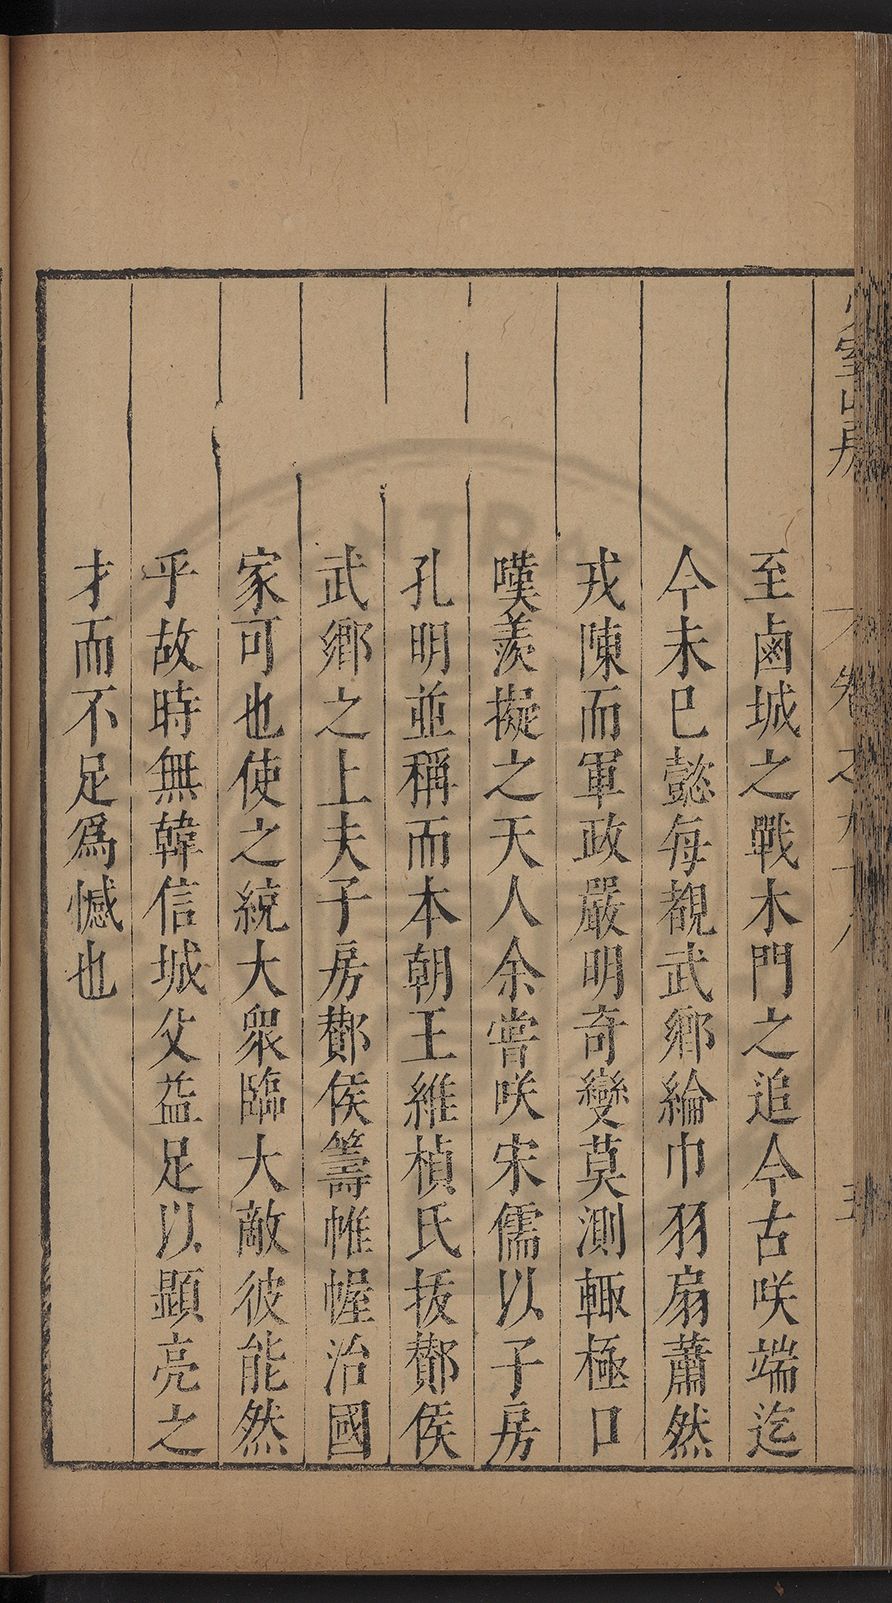 至鹵城之戰木門之追今古咲端迄
今未巳懿每覩武鄉綸巾羽扇蕭然
戎陳而軍政嚴明奇變莫測輙極口
嘆羨擬之天人余嘗咲宋儒以子房
孔明並稱而本朝王維楨氏拔酇侯
武鄉之上夫子房酇侯籌帷幄治國
家可也使之統大衆臨大敵彼能然
乎故時無韓信城父益足以顯亮之
才而不足爲憾也